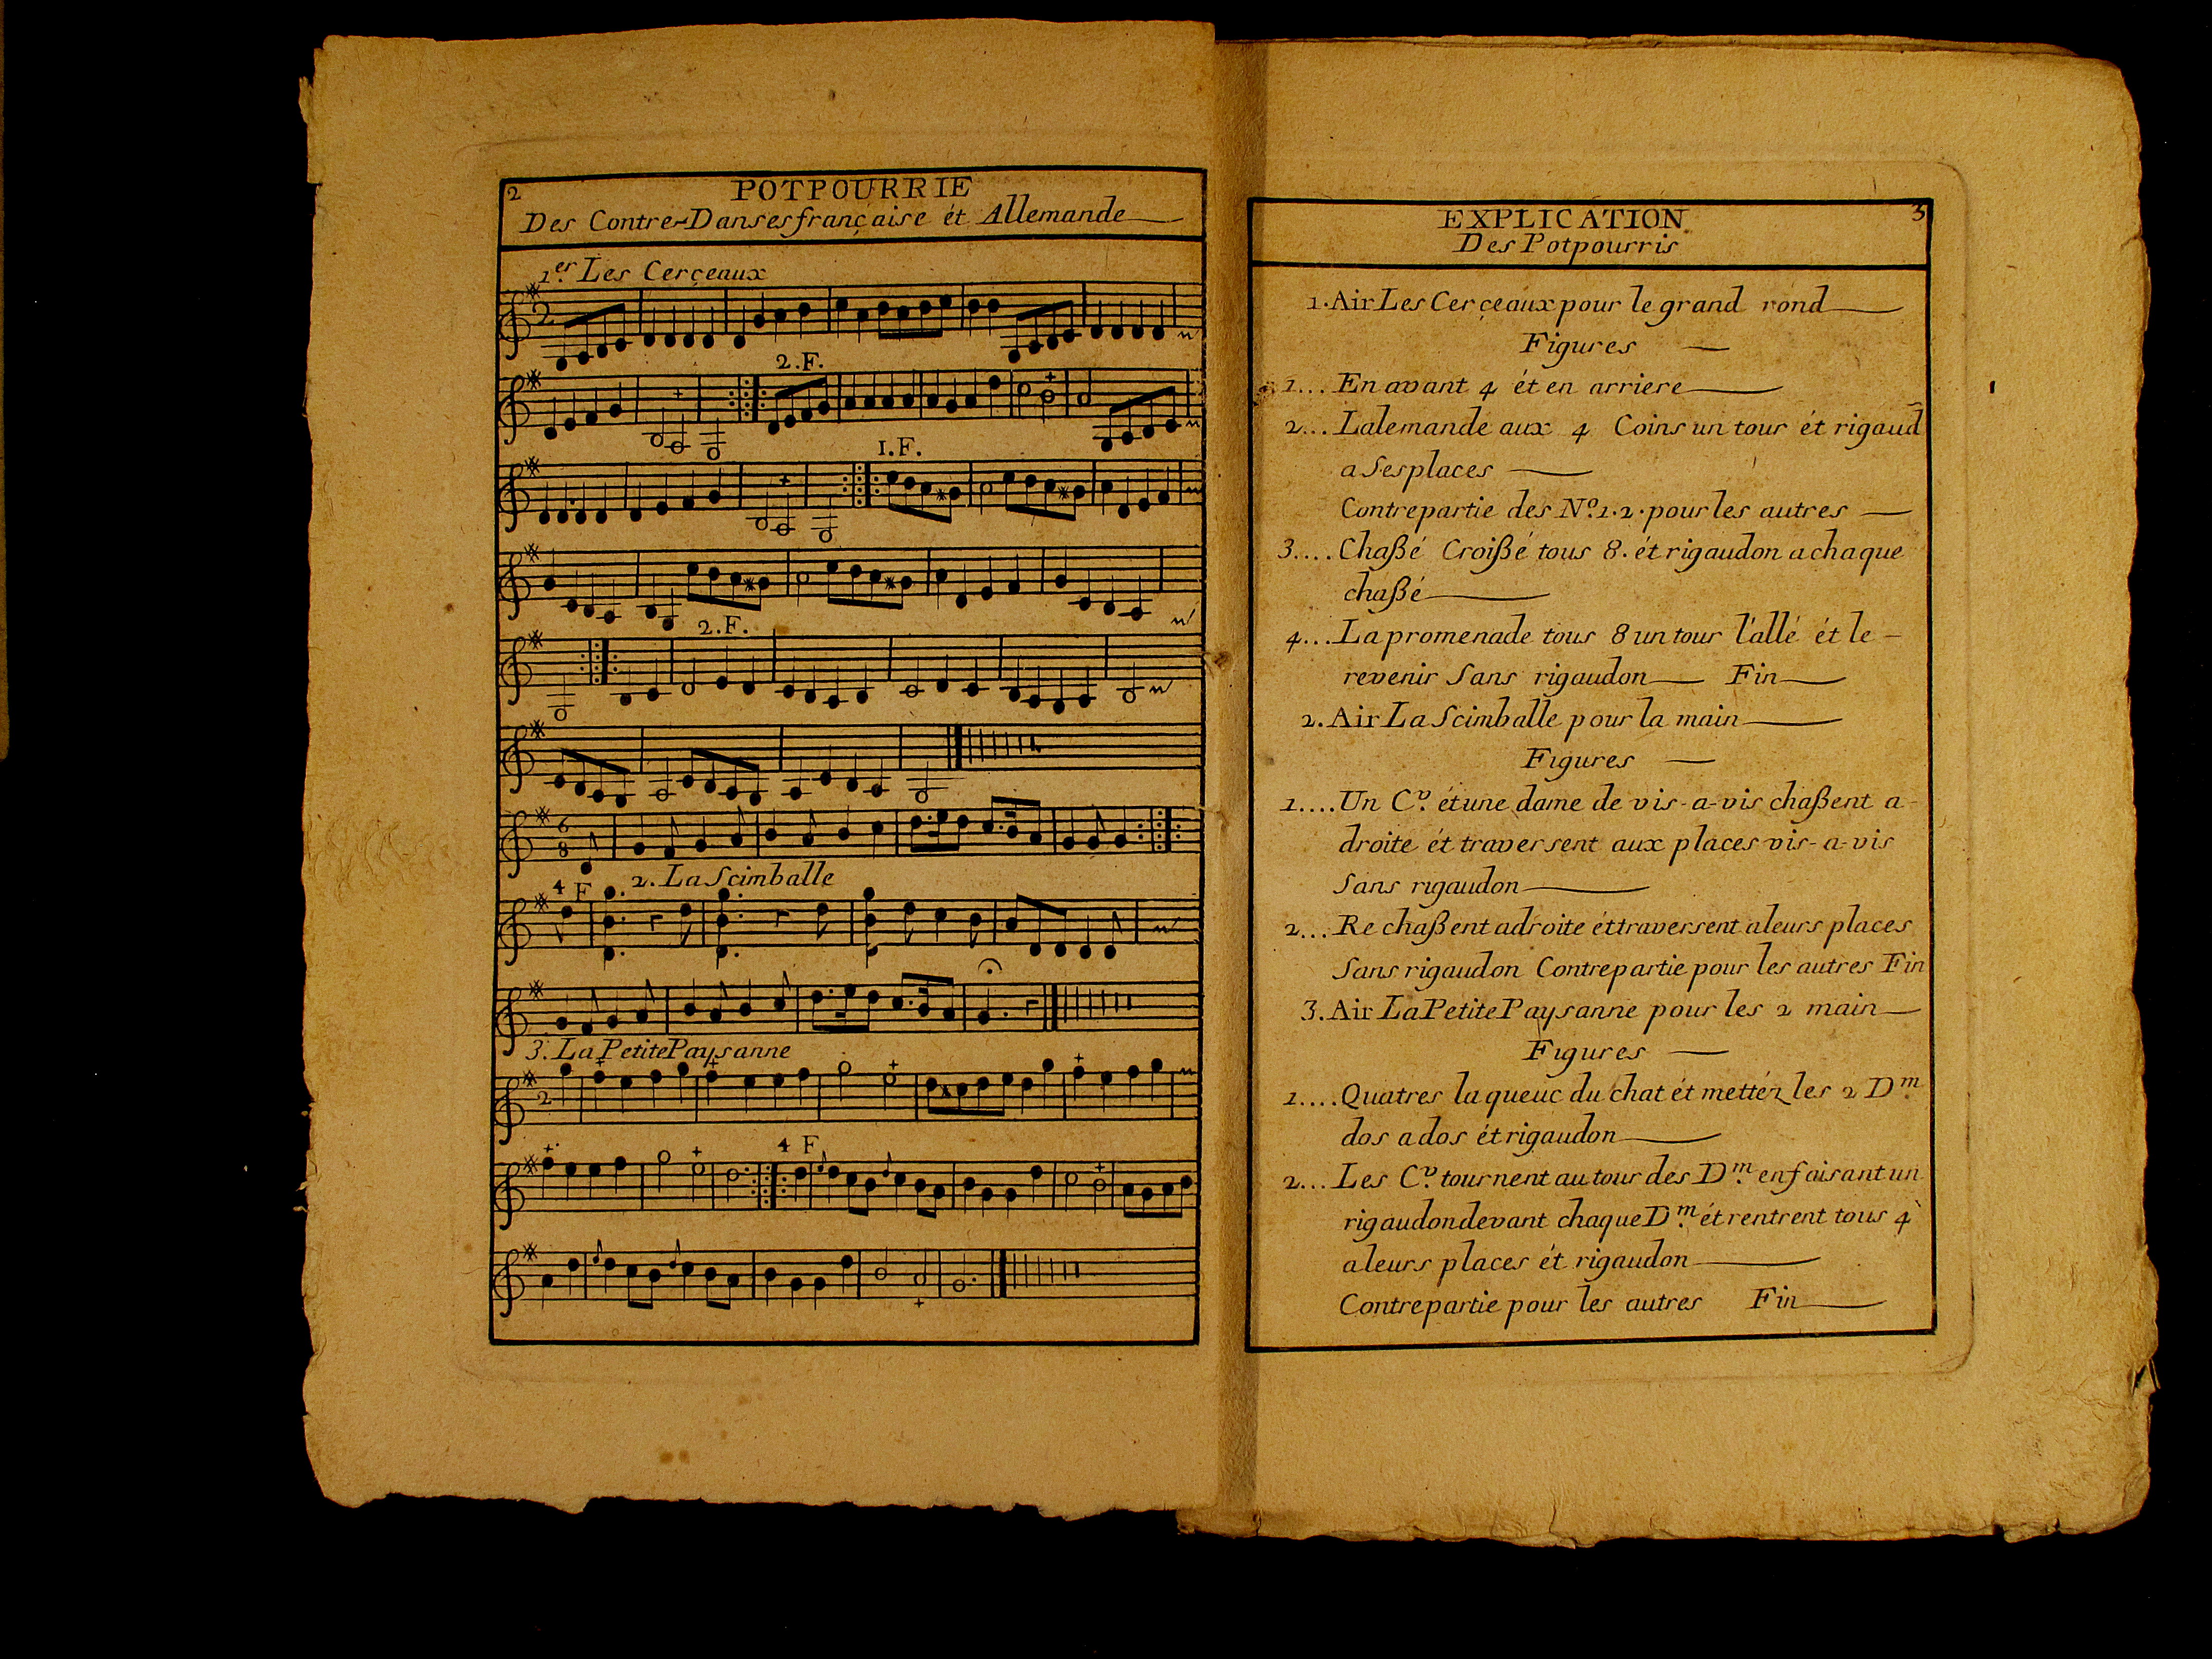 2
POTPOURRIE
Des Contre-Danses française ét Allemande
1.er Les Cerçeaux
2
2.F.
1.F.
2.F.
6
8
4 F
2. La Scimballe
3. La Petite Paysanne
2
4 F
EXPLICATION 3
Des Potpourris
1. Air Les Cerçeaux pour le grand rond
Figures
1... En avant 4 ét en arriere
2... Lalemande aux 4 Coins un tour ét rigaud
a Ses places
Contrepartie des No. 1. 2. pour les autres
3.... Chaßé Croißé tous 8. ét rigaudon a chaque
chaßé
4... La promenade tous 8 un tour l'allé ét le
revenir Sans rigaudon Fin
2. Air La Scimballe pour la main
Figures
1.... Un C.v ét une dame de vis-a-vis chaßent a
droite ét traversent aux places vis-a-vis
Sans rigaudon
2... Re chaßent adroite ét traversent a leurs places
Sans rigaudon Contrepartie pour les autres Fin
3. Air La Petite Paysanne pour les 2 main
Figures
1.... Quatres la queuc du chat ét mettéz les 2 D.m
dos a dos ét rigaudon
2... Les C.v tournent autour des D.m en faisant un
rigaudon devant chaque D.m ét rentrent tous 4
a leurs places ét rigaudon
Contrepartie pour les autres Fin